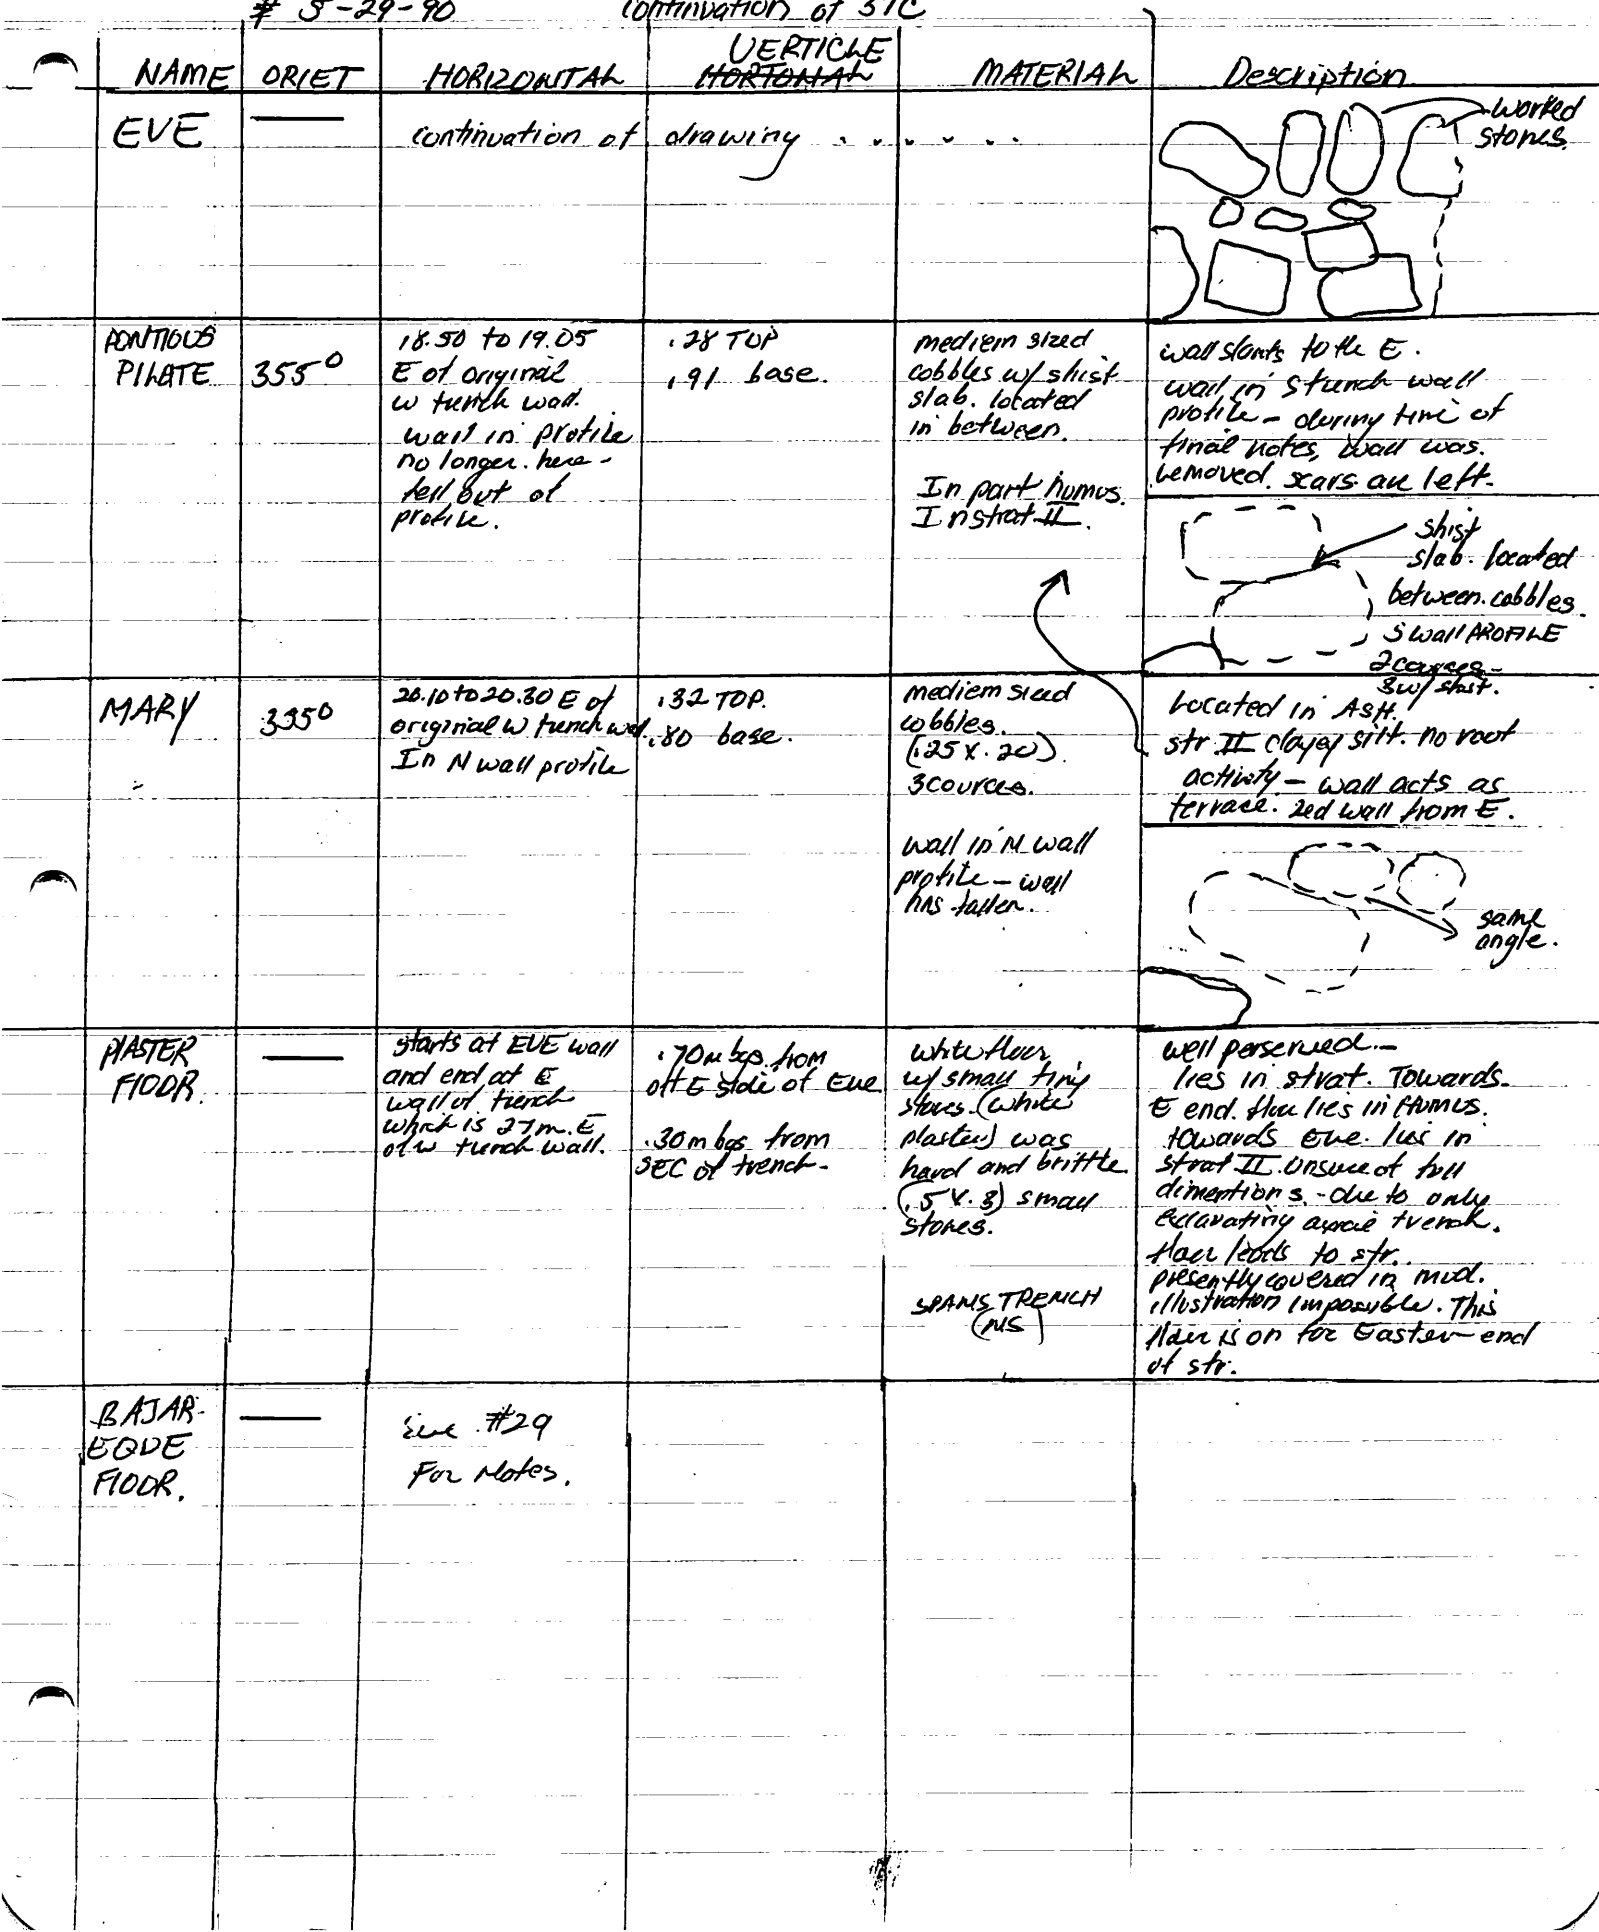 # 5-29-90 continuation of STC
NAME ORIET HORIZONTAL VERTICLE HORTONAL MATERIAL Description
EVE — continuation of drawing . . . . .
worked
stones.
PONTIOUS
PILATE
355°
18.50 to 19.05
E of original
W trench wall.
wall in profile
no longer here -
fell out of
profile.
.28 TOP
.91 base.
mediem sized
cobbles w/ shist
slab. located
in between.
In part humus.
In strat II.
wall slants to the E.
wall in S trench wall
profile - during time of
final notes, wall was.
removed. scars are left.
shist
slab. located
between cobbles.
S wall PROFILE
2 cources -
3 w/ shist.
MARY
335°
20.10 to 20.30 E of
original W trench wall.
In N wall profile
.32 TOP.
.80 base.
mediem sized
cobbles.
(.25 x .20).
3 cources.
wall in N wall
profile - wall
has fallen.
Located in ASH.
str. II clayey silt. no root
activity - wall acts as
terrace. 2ed wall from E.
same
angle.
PLASTER
FLOOR.
—
starts at EVE wall
and end at E
wall of trench
which is 27m. E
of W trench wall.
.70m bgs from
off E side of Eve
.30m bgs from
SEC of trench-
white floor
w/ small tiny
stones (white
plaster) was
hard and brittle
(.5 x .3) small
stones.
SPANS TRENCH
(NS)
well perserved.-
lies in strat. Towards
E end. floor lies in HUMUS.
towards Eve. lies in
strat II. Unsure of full
dimentions. - due to only
excavating trench.
floor leads to str..
presently covered in mud.
illustration impossible. This
floor is on for Eastern end
of str.
BAJAR-
EQUE
FLOOR.
—
#29
For Notes.